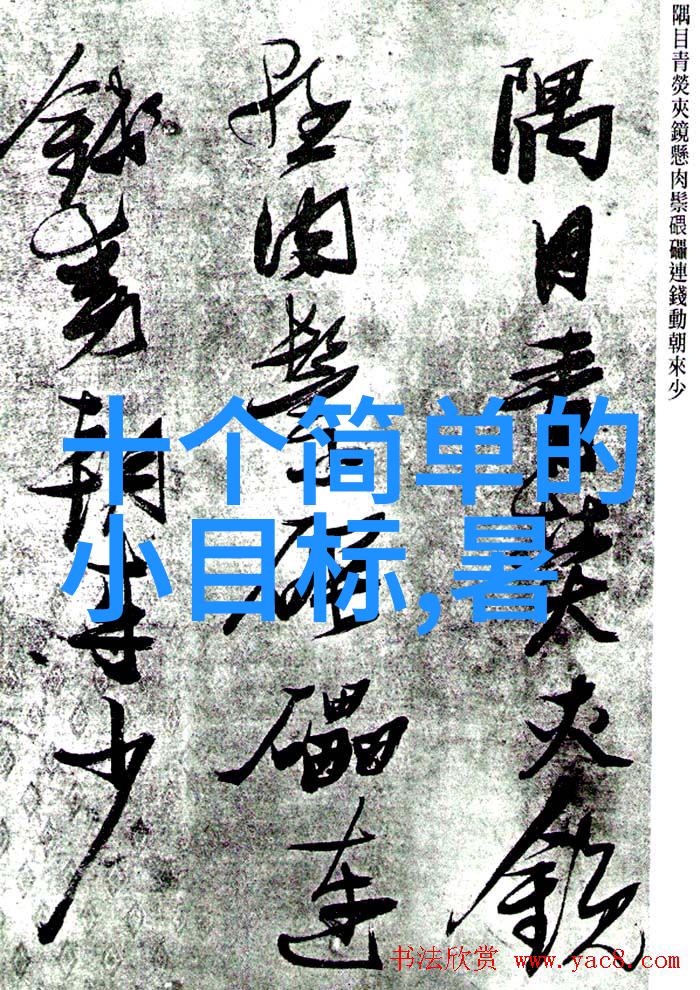 隅目青熒夾鏡懸肉鬃碨礌連錢動朝來少
隅目青熒夾鏡
懸肉鬃碨礌連
錢動朝來少
十个简单的
小目标,暑
书法欣赏 www.yac8.com